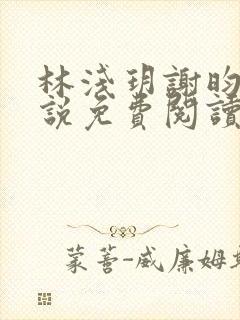 林淺玥謝昀
說免費閱讀
蒙薈-威廉姆斯